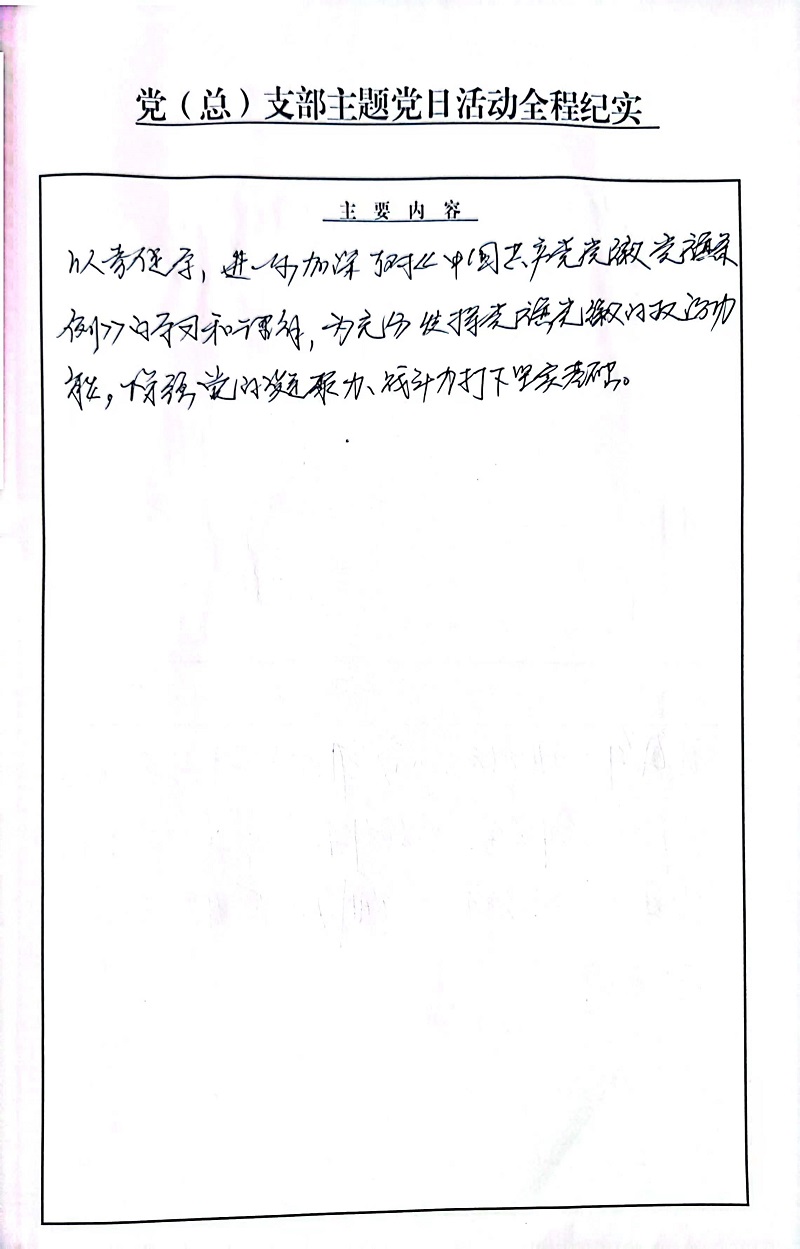 党（总）支部主题党日活动全程纪实
主要内容
以考促学，进一步加深对《中国共产党党徽党旗条
例》的学习和理解，为充分发挥党旗党徽的政治功
能，增强党的凝聚力、战斗力打下坚实基础。